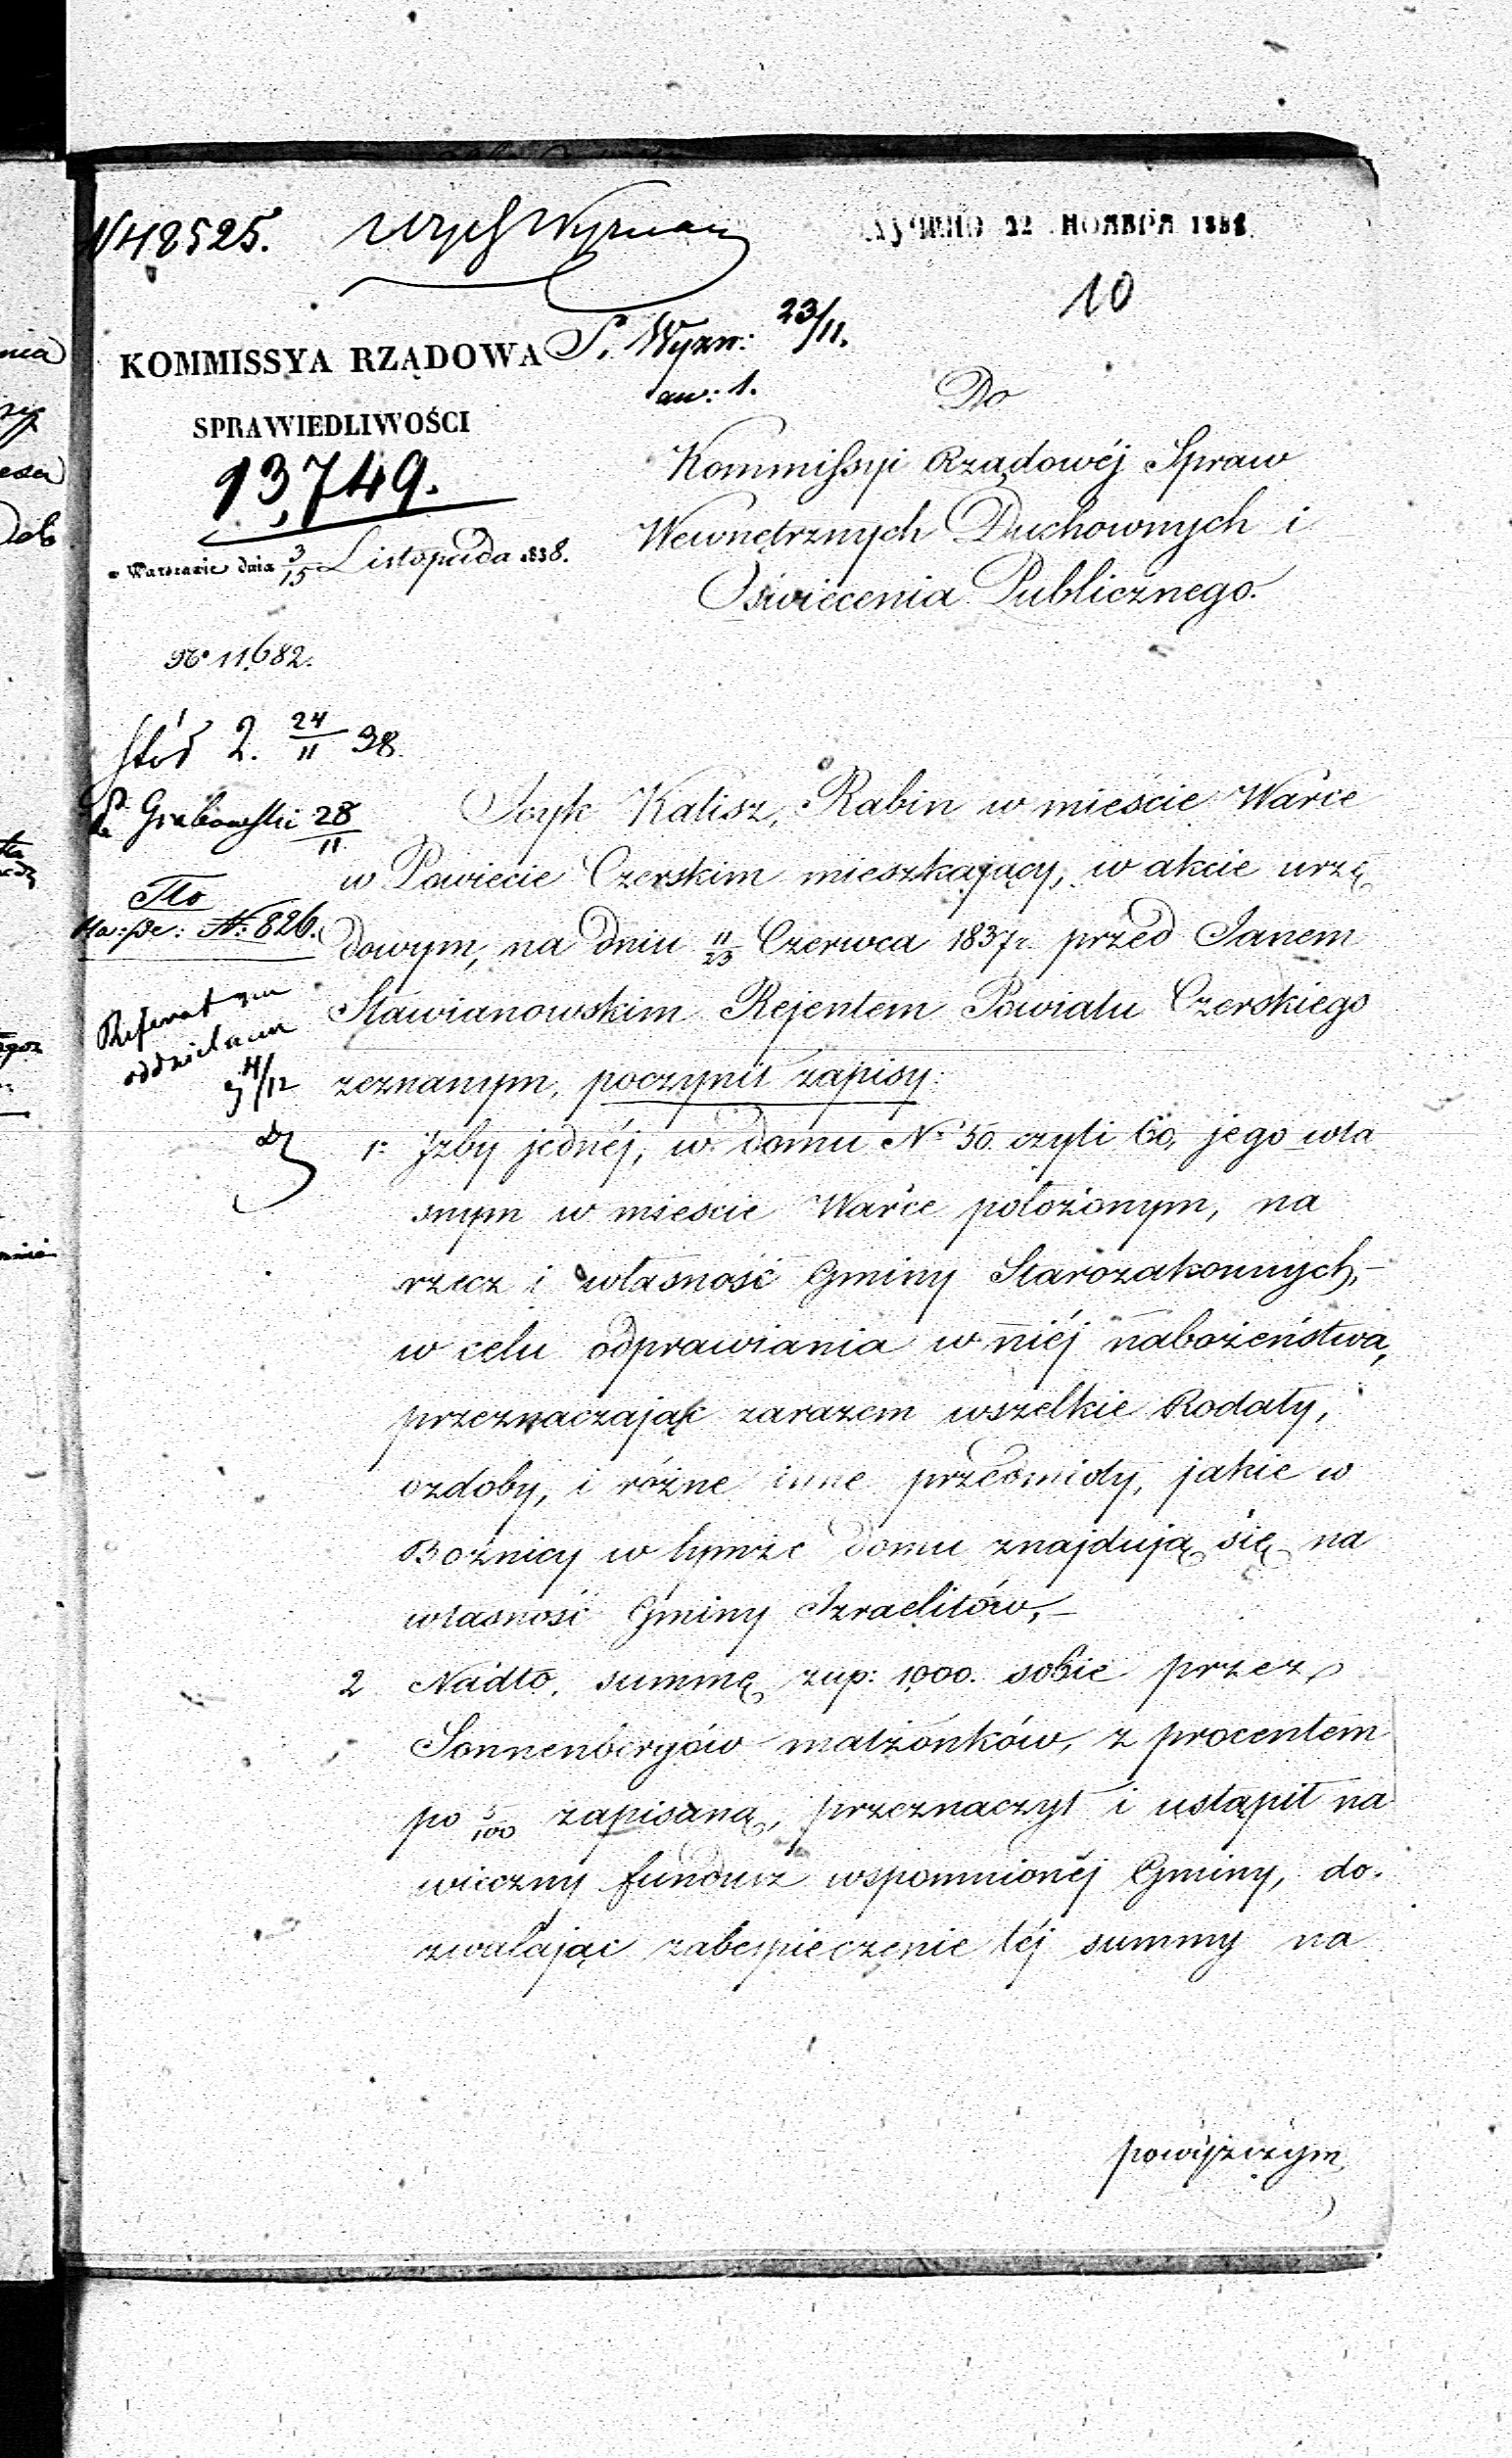 N 48525.
22 НОЯБРЯ 1838
10
P. Wyzn: 23/11.
an: 1.
KOMMISSYA RZĄDOWA
SPRAWIEDLIWOŚCI
13,749.
w Warszawie dnia 3/15 Listopada 1838.
Nº 11,682.
Do
Kommissyi Rządowéj Spraw
Wewnętrznych Duchownych i
Oświecenia Publicznego.
2. 24/11 38.
Grabowski 28/11
N: 826.
Referat
4/12
Icyk Kalisz, Rabin w mieście Warce
w Powiecie Czerskim mieszkający, w akcie urzę
dowym, na dniu 11/23 Czerwca 1837 r. przed Janem
Sławianowskim Rejentem Powiatu Czerskiego
zeznanym, poczynił zapisy:
1: Izby jednéj, w domu Nº 50. czyli 60, jego wła
snym w mieście Warce położonym, na
rzecz i własność Gminy Starozakonnych,
w celu odprawiania w niéj nabożeństwa,
przeznaczając zarazem wszelkie Rodały,
ozdoby, i różne inne przedmioty, jakie w
Boźnicy w tymże domu znajdują się, na
własność Gminy Izraelitów,
2 Nadto, summę złp: 1000. sobie przez
Sonnenbergów małżonków, z procentem
po 5/100 zapisaną, przeznaczył i ustąpił na
wieczny fundusz wspomnionéj Gminy, do-
zwalając zabezpieczenie téj summy na
powyższym